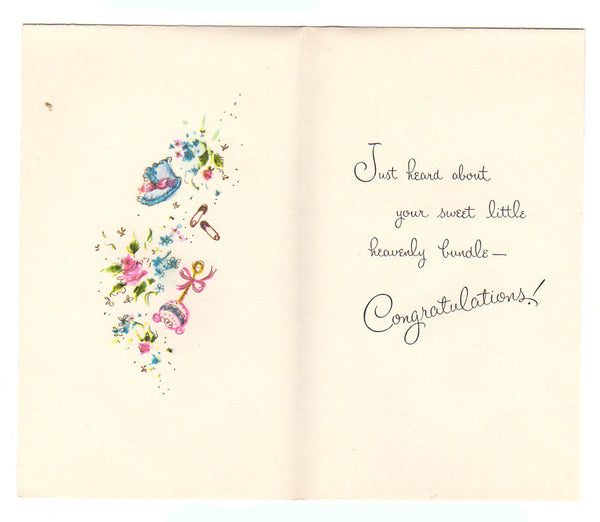 Just heard about
your sweet little
heavenly bundle—
Congratulations!